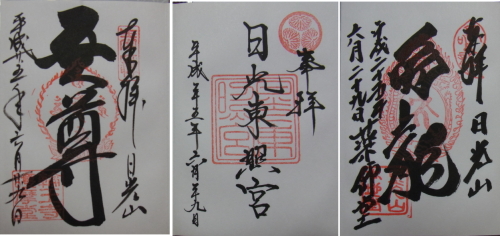 奉拝 日光山
三尊
平成二十五年六月二十九日
奉拝
日光東照宮
平成二十五年六月二十九日
奉拝 日光山
鳴龍
平成二十五年
六月二十九日 薬師堂